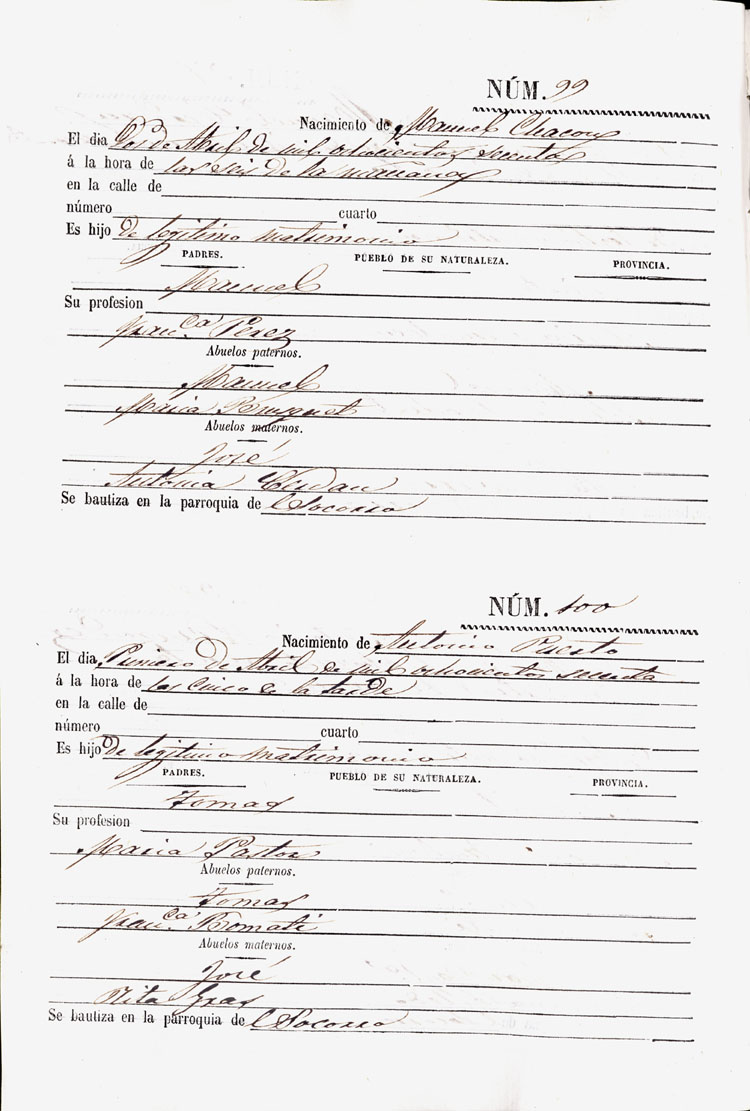 NÚM. 99
Nacimiento de Manuel Chacon
El dia Dos de Abril de mil ochocientos secenta
á la hora de las seis de la mañana
en la calle de
número cuarto
Es hijo de legitimo matrimonio
PADRES. PUEBLO DE SU NATURALEZA. PROVINCIA.
Manuel
Su profesion
Fran.ca Perez
Abuelos paternos.
Manuel
Maria
Abuelos maternos.
José
Antonia
Se bautiza en la parroquia de l Socorro
NÚM. 100
Nacimiento de Antonio Puerto
El dia Primero de Abril de mil ochocientos secenta
á la hora de las Cinco de la tarde
en la calle de
número cuarto
Es hijo de legitimo matrimonio
PADRES. PUEBLO DE SU NATURALEZA. PROVINCIA.
Tomas
Su profesion
Maria Pastor
Abuelos paternos.
Tomas
Fran.ca Bromati
Abuelos maternos.
José
Rita Gras
Se bautiza en la parroquia de l Socorro